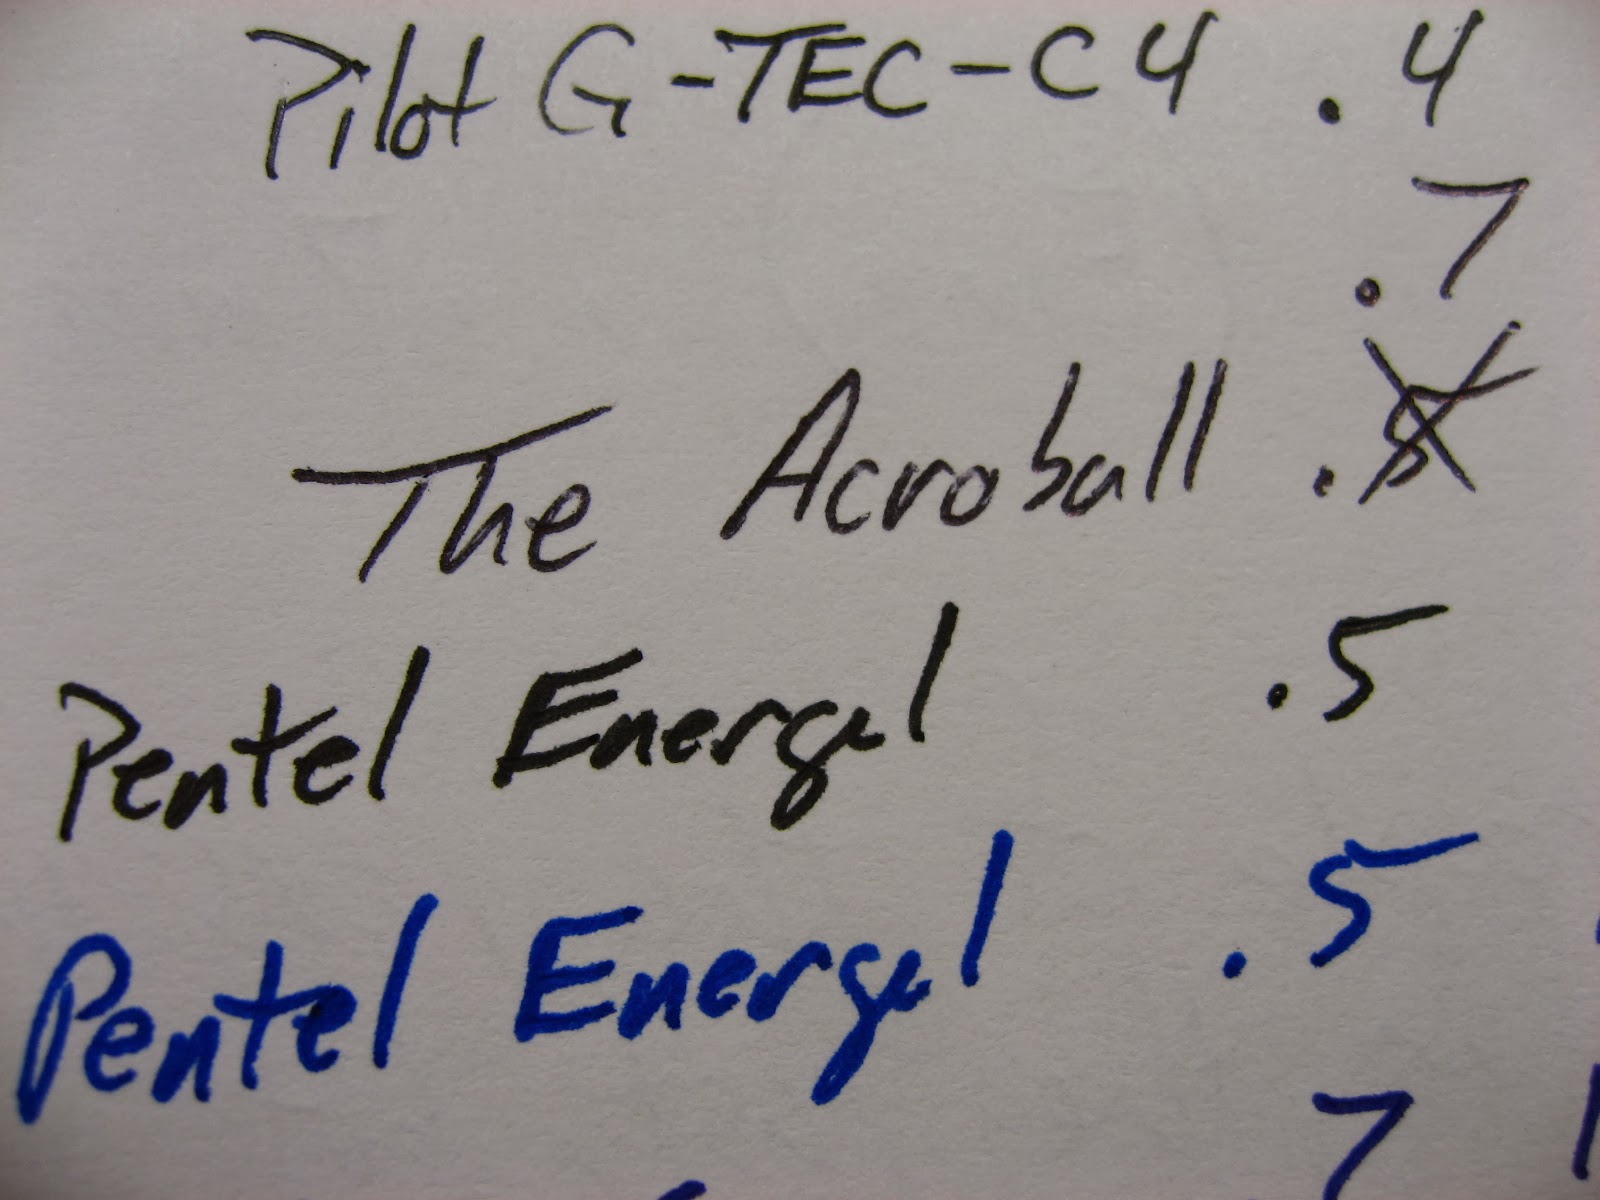 Pilot G-TEC-C4 .4
.7
The Acroball .5
Pentel Energel .5
Pentel Energel .5
7